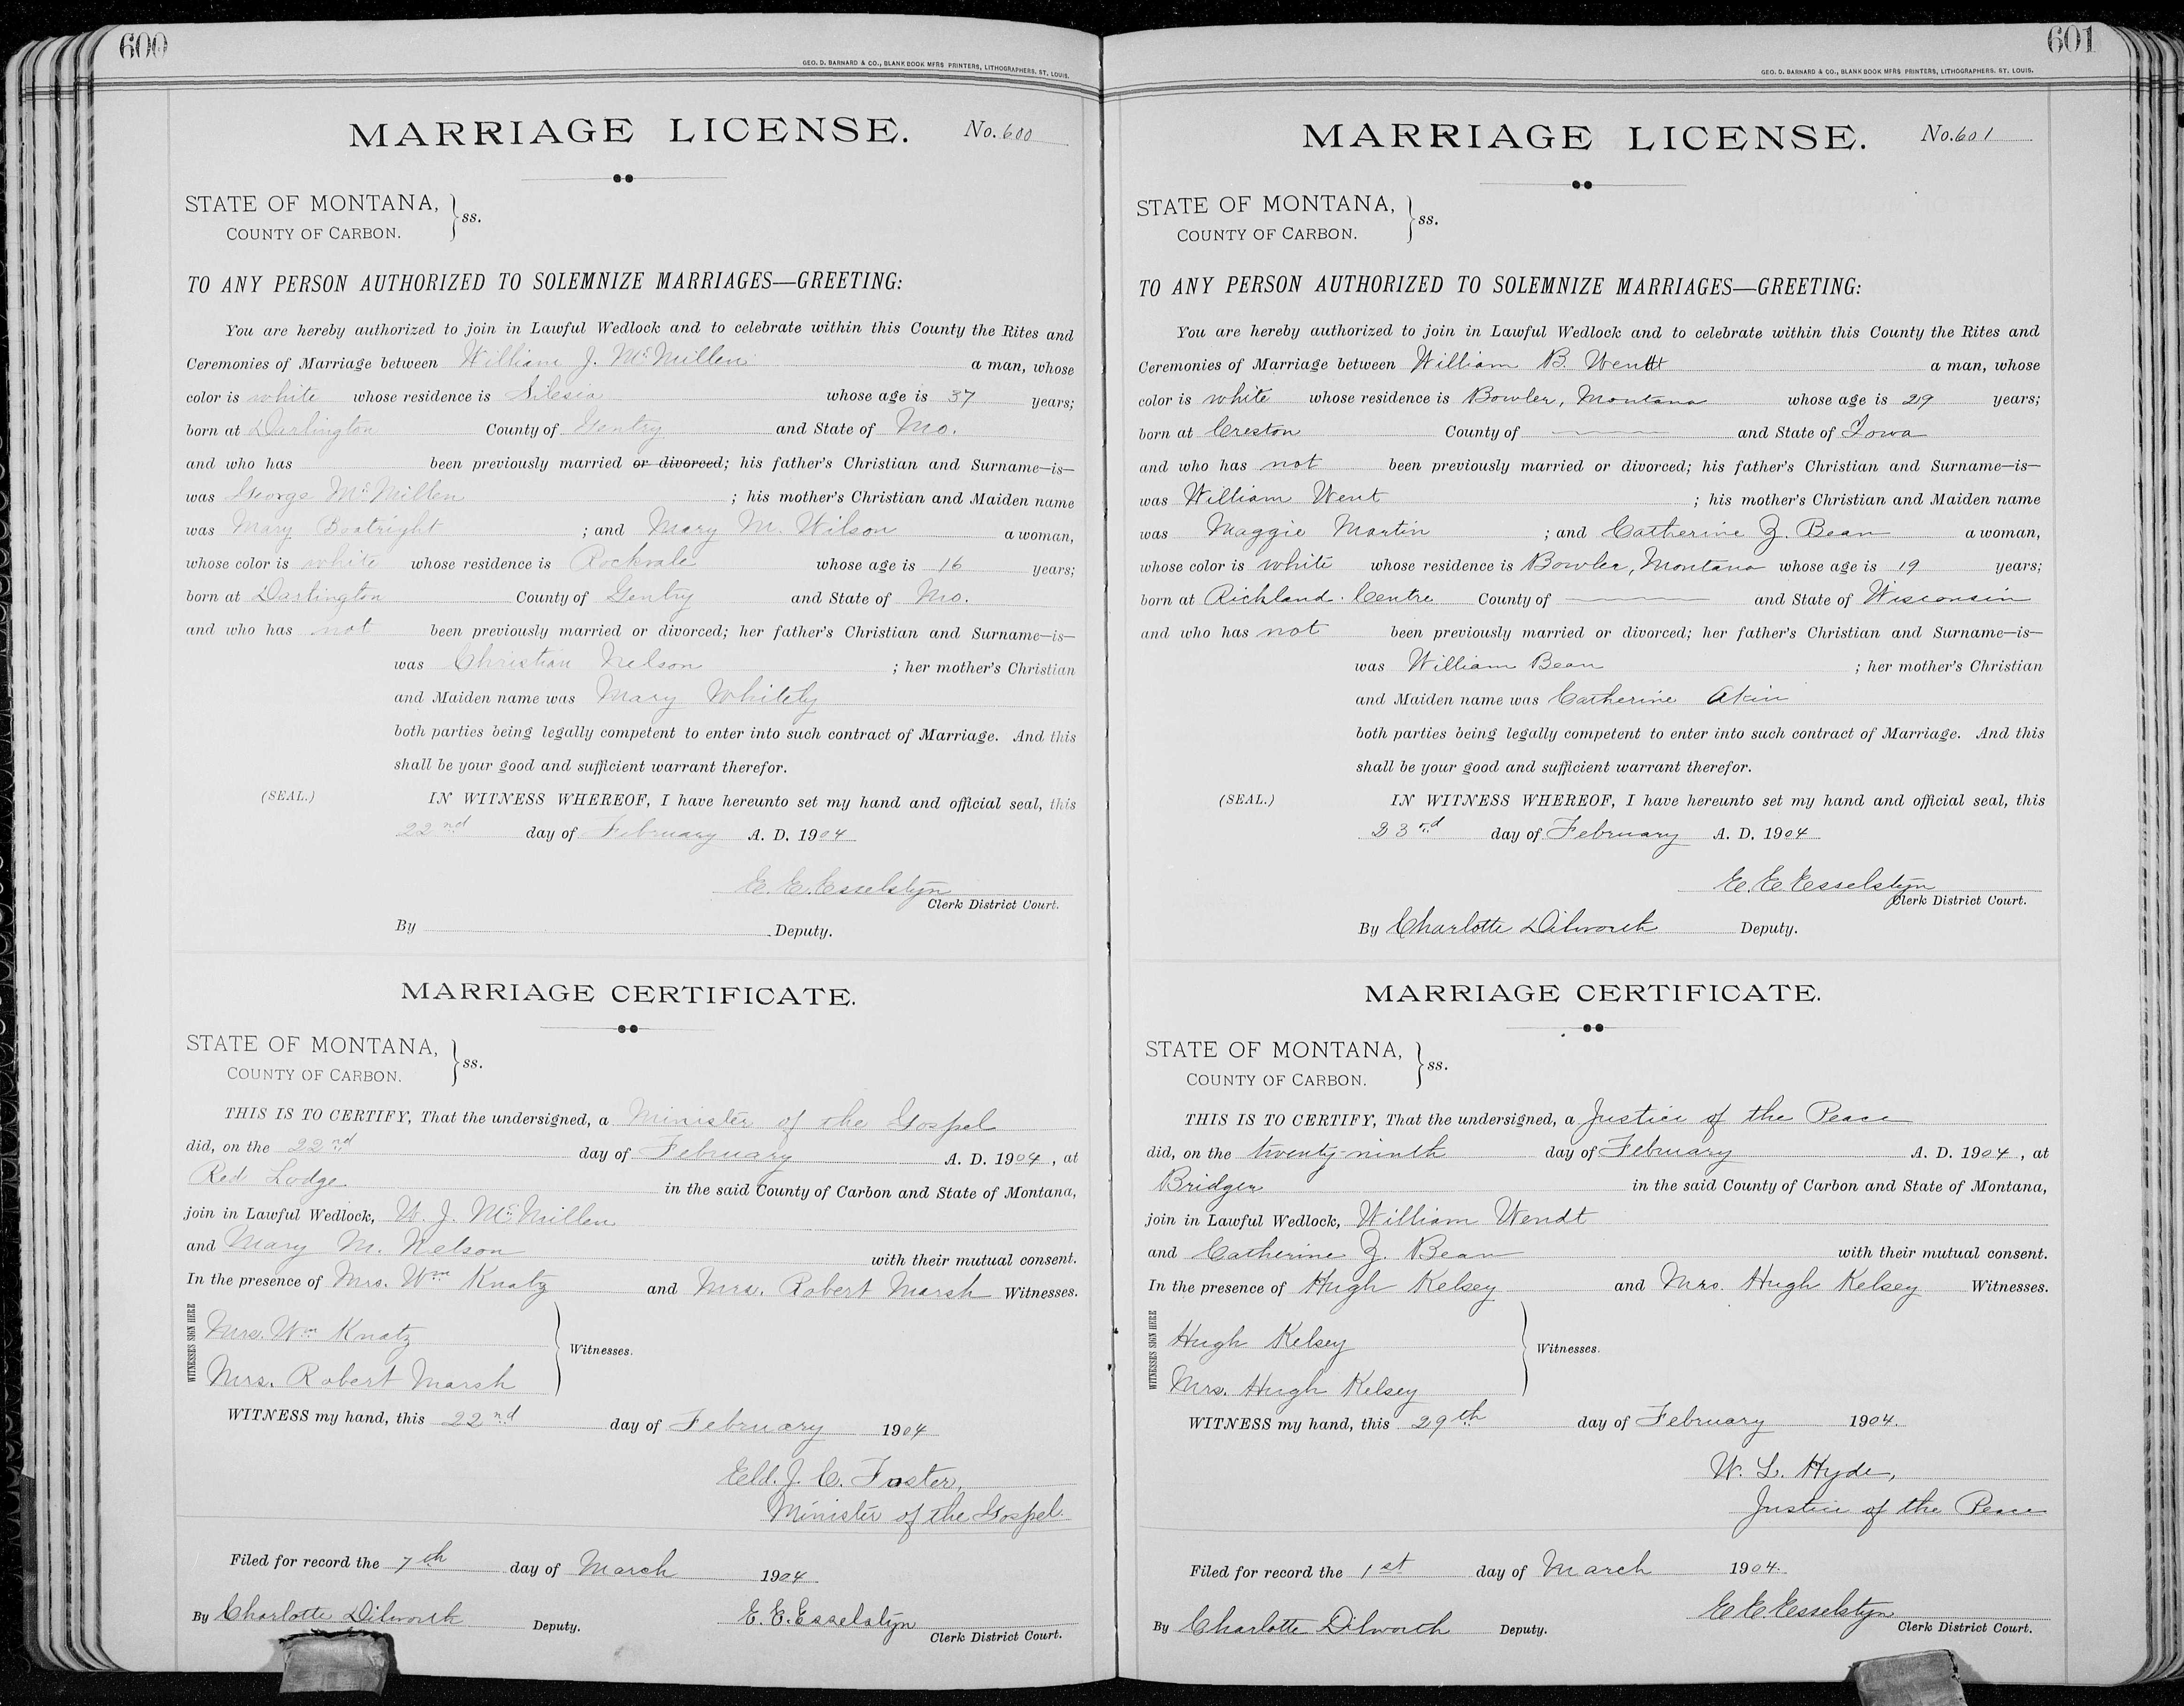 600
GEO. D. BARNARD & CO., BLANK BOOK MFRS PRINTERS, LITHOGRAPHERS. ST. LOUIS.
MARRIAGE LICENSE. No. 600
STATE OF MONTANA,
COUNTY OF CARBON. } ss.
TO ANY PERSON AUTHORIZED TO SOLEMNIZE MARRIAGES—GREETING:
You are hereby authorized to join in Lawful Wedlock and to celebrate within this County the Rites and
Ceremonies of Marriage between William J. McMillen a man, whose
color is white whose residence is Silesia whose age is 37 years;
born at Darlington County of Gentry and State of Mo.
and who has been previously married or divorced; his father's Christian and Surname—is—
was George McMillen ; his mother's Christian and Maiden name
was Mary Boatright ; and Mary M. Wilson a woman,
whose color is white whose residence is Rockvale whose age is 16 years;
born at Darlington County of Gentry and State of Mo.
and who has not been previously married or divorced; her father's Christian and Surname—is—
was Christian Nelson ; her mother's Christian
and Maiden name was Mary Whitely
both parties being legally competent to enter into such contract of Marriage. And this
shall be your good and sufficient warrant therefor.
(SEAL.) IN WITNESS WHEREOF, I have hereunto set my hand and official seal, this
22nd day of February A. D. 1904
E. E. Esselstyn
Clerk District Court.
By Deputy.
MARRIAGE CERTIFICATE.
STATE OF MONTANA,
COUNTY OF CARBON. } ss.
THIS IS TO CERTIFY, That the undersigned, a Minister of the Gospel
did, on the 22nd day of February A. D. 1904, at
Red Lodge in the said County of Carbon and State of Montana,
join in Lawful Wedlock, W. J. McMillen
and Mary M. Nelson with their mutual consent.
In the presence of Mrs. Wm Knatz and Mrs. Robert Marsh Witnesses.
WITNESSES SIGN HERE
Mrs. Wm Knatz
Mrs. Robert Marsh } Witnesses.
WITNESS my hand, this 22nd day of February 1904
Eld. J. C. Foster,
Minister of the Gospel.
Filed for record the 7th day of March 1904
By Charlotte Dilworth Deputy. E. E. Esselstyn
Clerk District Court.
601
GEO. D. BARNARD & CO., BLANK BOOK MFRS PRINTERS, LITHOGRAPHERS. ST. LOUIS.
MARRIAGE LICENSE. No. 601
STATE OF MONTANA,
COUNTY OF CARBON. } ss.
TO ANY PERSON AUTHORIZED TO SOLEMNIZE MARRIAGES—GREETING:
You are hereby authorized to join in Lawful Wedlock and to celebrate within this County the Rites and
Ceremonies of Marriage between William B. Wendt a man, whose
color is white whose residence is Bowler, Montana whose age is 29 years;
born at Creston County of —— and State of Iowa
and who has not been previously married or divorced; his father's Christian and Surname—is—
was William Went ; his mother's Christian and Maiden name
was Maggie Martin ; and Catherine Z. Bean a woman,
whose color is white whose residence is Bowler, Montana whose age is 19 years;
born at Rickland Centre County of —— and State of Wisconsin
and who has not been previously married or divorced; her father's Christian and Surname—is—
was William Bean ; her mother's Christian
and Maiden name was Catherine Akin
both parties being legally competent to enter into such contract of Marriage. And this
shall be your good and sufficient warrant therefor.
(SEAL.) IN WITNESS WHEREOF, I have hereunto set my hand and official seal, this
23rd day of February A. D. 1904
E. E. Esselstyn
Clerk District Court.
By Charlotte Dilworth Deputy.
MARRIAGE CERTIFICATE.
STATE OF MONTANA,
COUNTY OF CARBON. } ss.
THIS IS TO CERTIFY, That the undersigned, a Justice of the Peace
did, on the twenty-ninth day of February A. D. 1904, at
Bridger in the said County of Carbon and State of Montana,
join in Lawful Wedlock, William Wendt
and Catherine Z. Bean with their mutual consent.
In the presence of Hugh Kelsey and Mrs. Hugh Kelsey Witnesses.
WITNESSES SIGN HERE
Hugh Kelsey
Mrs. Hugh Kelsey } Witnesses.
WITNESS my hand, this 29th day of February 1904.
W. L. Hyde,
Justice of the Peace
Filed for record the 1st day of March 1904.
E. E. Esselstyn
By Charlotte Dilworth Deputy. Clerk District Court.